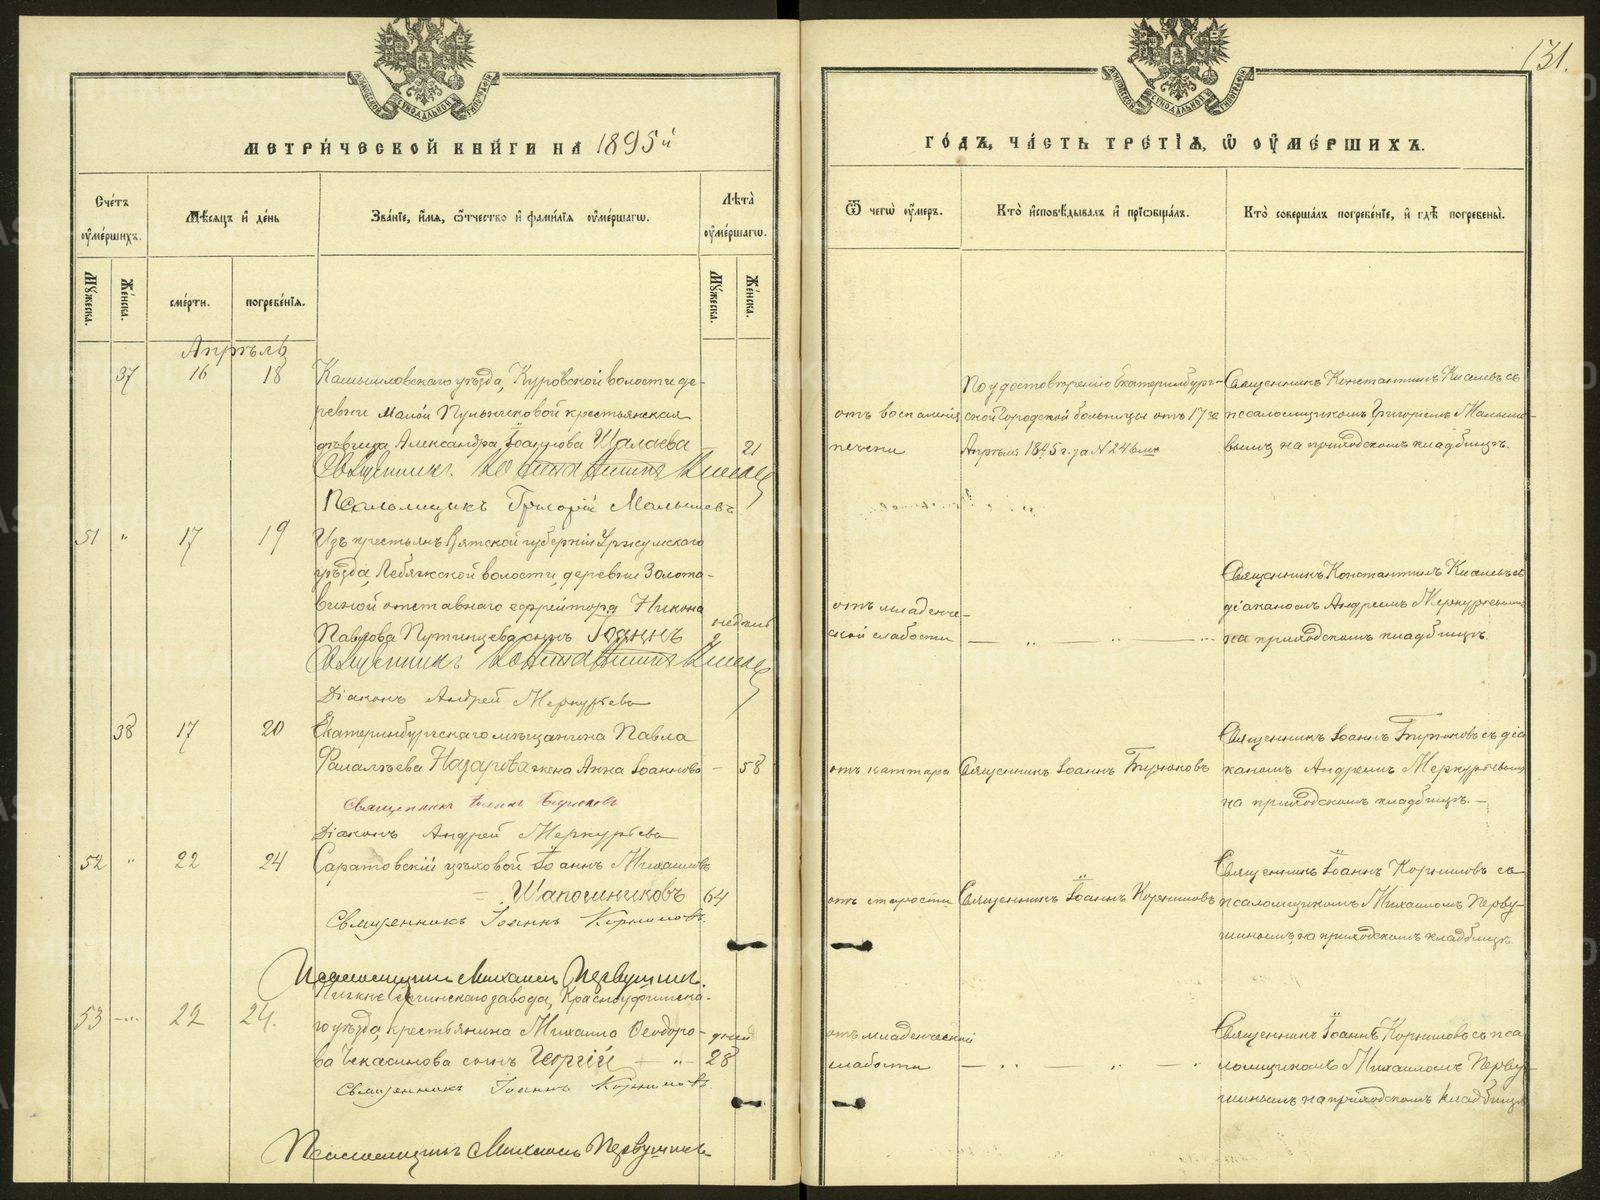 131.
МЕТРИ́ЧЕСКОЙ КНИ́ГИ НА 1895й
ГО́ДЪ, ЧА́СТЬ ТРЕ́ТІѦ, Ѿ ОУМЕ́РШИХЪ.
Сче́тъ оуме́ршихъ.
Мꙋжеска.
Же́нска.
Мѣ́сяцъ и де́нь
сме́рти.
погребе́нія.
Зва́ніе, и́мѧ, ѻ҆́тчество и фами́лія оуме́ршагѡ.
Лѣта̀ оуме́ршагѡ.
Мꙋжеска.
Же́нска.
Ѿ чегѡ̀ оу́меръ.
Кто̀ исповѣ́дывалъ и прїѡбща́лъ.
Кто̀ соверша́лъ погребе́ніе, и гдѣ̀ погребены̀.
Апрѣль
37 16 18
Камышловскаго уѣзда, Куровской волости де-
ревни Малой Пульниковой крестьянская
дѣвица Александра Іоаннова Шалаева — 21
Священникъ Константинъ Киселевъ
Псаломщикъ Григорій Малышевъ
отъ воспаленія
печени
По удостовѣренію Екатеринбург-
ской Городской больницы отъ 17го
Апрѣля 1895 г. за № 246мъ
Священникъ Константинъ Киселевъ съ
псаломщикомъ Григоріемъ Малыше-
вымъ на приходскомъ кладбищѣ.
51 " 17 19
Изъ крестьянъ Вятской губерніи Уржумскаго
уѣзда, Лебяжской волости, деревни Золота-
виной отставнаго ефрейтора Никона
Павлова Путинцева сынъ Іоаннъ
недѣль
2
Священникъ Константинъ Киселевъ
Діаконъ Андрей Меркурьевъ
отъ младенче-
ской слабости
— " — " —
Священникъ Константинъ Киселевъ съ
діакономъ Андреемъ Меркурьевымъ
на приходскомъ кладбищѣ.
38 17 20
Екатеринбургскаго мѣщанина Павла
Фалалѣева Назарова жена Анна Іоаннова — 58
Священникъ Іоаннъ Бирюковъ
Діаконъ Андрей Меркурьевъ
отъ каттара
Священникъ Іоаннъ Бирюковъ
Священникъ Іоаннъ Бирюковъ съ діа
кономъ Андреемъ Меркурьевымъ
на приходскомъ кладбищѣ. —
52 " 22 24
Саратовскій цѣховой Іоаннъ Михаиловъ
= Шапошниковъ 64
Священникъ Іоаннъ Корниловъ.
Псаломщикъ Михаилъ Первушинъ.
отъ старости
Священникъ Іоаннъ Корниловъ
Священникъ Іоаннъ Корниловъ съ
псаломщикомъ Михаиломъ Перву-
шинымъ, на приходскомъ кладбищѣ.
53 —"— 22 24.
Нижне-Сергинскаго завода, Красноуфимска-
го уѣзда, крестьянина Михаила Ѳеодоро-
ва Чекасинова сынъ Георгій — " —
дней
28
Священникъ Іоаннъ Корниловъ.
Псаломщикъ Михаилъ Первушинъ.
отъ младенческой
слабости
— " — " — "
Священникъ Іоаннъ Корниловъ съ пса
ломщикомъ Михаиломъ Перву-
шинымъ на приходскомъ кладбищѣ